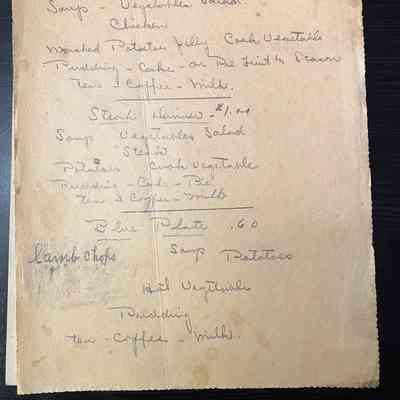 Soup - Vegetables Salad.
Chicken
Mashed Potatoes Jelly Cook Vegetable
Pudding - Cake - or Pie Season
Tea - Coffee - Milk.
Steak Dinner - $1.00
Soup Vegetables Salad
Steak
Potatoes Cook Vegetable
Pudding - Cake - Pie
Tea & Coffee - Milk
Blue Plate .60
Lamb Chops Soup Potatoes
Vegetable
Pudding
Tea - Coffee - Milk.